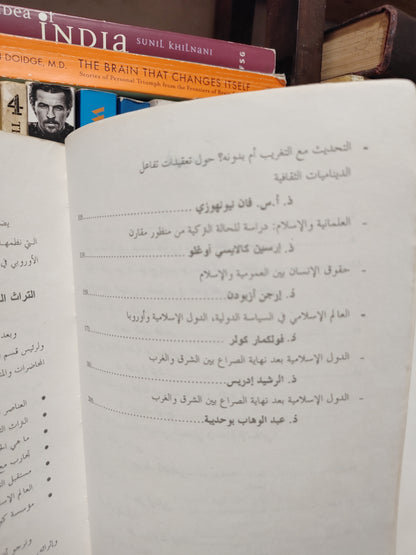 idea of
INDIA
SUNIL KHILNANI
FSG
DOIDGE, M.D.
THE BRAIN THAT CHANGES ITSELF
Stories of Personal Triumph from the Frontiers of
4
- التحديث مع التغريب أم بدونه؟ حول تعقيدات تفاعل
الديناميات الثقافية
ذ. أ.س. فان نيونهوزي
- العلمانية والإسلام: دراسة للحالة التركية من منظور مقارن
ذ. إرسين كالايسي أوغلو
- حقوق الإنسان بين العمومية والإسلام
ذ. إرجن أزبودن
- العالم الإسلامي في السياسة الدولية، الدول الإسلامية وأوروبا
ذ. فولكمار كولر
- الدول الإسلامية بعد نهاية الصراع بين الشرق والغرب
ذ. الرشيد إدريس
- الدول الإسلامية بعد نهاية الصراع بين الشرق والغرب
ذ. عبد الوهاب بوحديبة
التي نظمها
الأوروبي في
التراث
وبعد
ولرئيس قسم
المحاضرات
• العناصر
• التراث
• ما هي
• تجارب مع
• مستقبل
• العالم
• مؤسسة